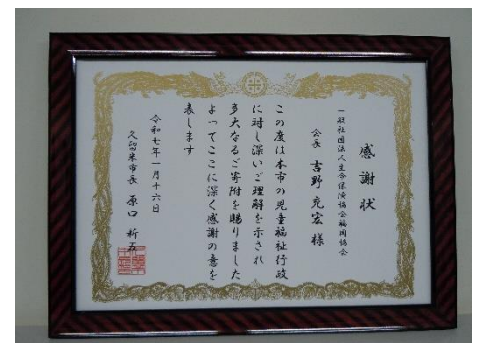 感謝状
一般社団法人生命保険協会福岡協会
会長 吉野充宏様
この度は本市の児童福祉行政
に対し深いご理解を示され
多大なるご寄附を賜りました
よってここに深く感謝の意を
表します
令和七年一月十六日
久留米市長 原口新五